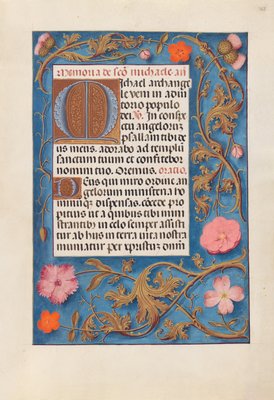 Memoria de sco michaele a
Michael archange
le veni in adiu
torio populo
dei. V. In conspe
ctu angelorum
psallam tibi de
us meus. adorabo ad templu
sanctum tuum et confitebor
nomini tuo. Oremus, oratio.
Deus qui miro ordine an
gelorum ministeria ho
minuq dispensas. cocede pro
pitius ut a quibus tibi mini
strantibz in celo semper assisti
tur ab his in terra vita nostra
muniatur. per xpristum dnm